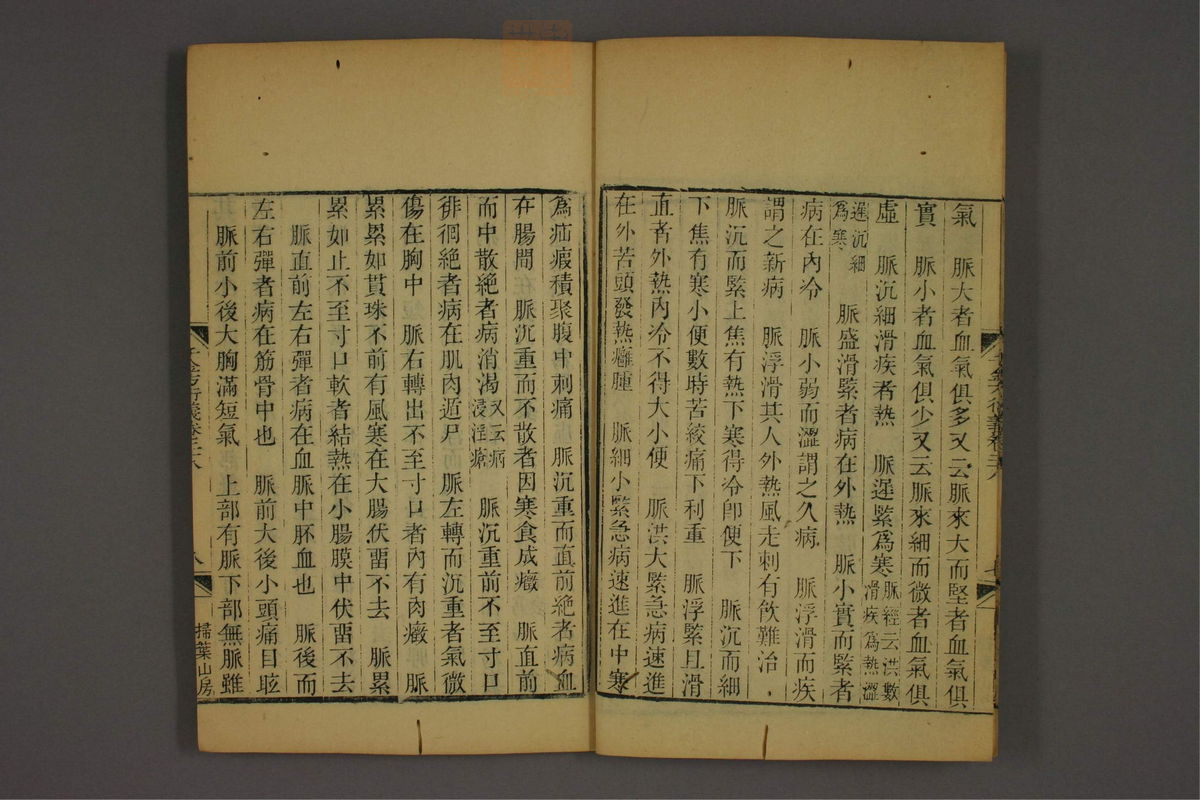 氣　脈大者血氣俱多又云脈來大而堅者血氣俱
實　脈小者血氣俱少又云脈來細而微者血氣俱
虛　脈沉細滑疾者熱　脈遲緊爲寒脈經云洪數滑疾爲熱澀
遲沉細爲寒　脈盛滑緊者病在外熱　脈小實而緊者
病在內冷　脈小弱而澀謂之久病　脈浮滑而疾
謂之新病　脈浮滑其人外熱風走刺有飲難治
脈沉而緊上焦有熱下寒得冷卽便下　脈沉而細
下焦有寒小便數時苦絞痛下利重　脈浮緊且滑
直者外熱內冷不得大小便　脈洪大緊急病速進
在外苦頭發熱癰腫　脈細小緊急病速進在中寒
爲疝瘕積聚腹中刺痛　脈沉重而直前絕者病血
在腸間　脈沉重而不散者因寒食成癥　脈直前
而中散絕者病消渴又云病浸淫瘡　脈沉重前不至寸口
徘徊絕者病在肌肉遁尸　脈左轉而沉重者氣微
傷在胸中　脈右轉出不至寸口者內有肉癥　脈
累累如貫珠不前有風寒在大腸伏畱不去　脈累
累如止不至寸口軟者結熱在小腸膜中伏畱不去
脈直前左右彈者病在血脈中胚血也　脈後而
左右彈者病在筋骨中也　脈前大後小頭痛目眩
脈前小後大胸滿短氣　上部有脈下部無脈雖
千金方衍義卷二十八
八
掃葉山房